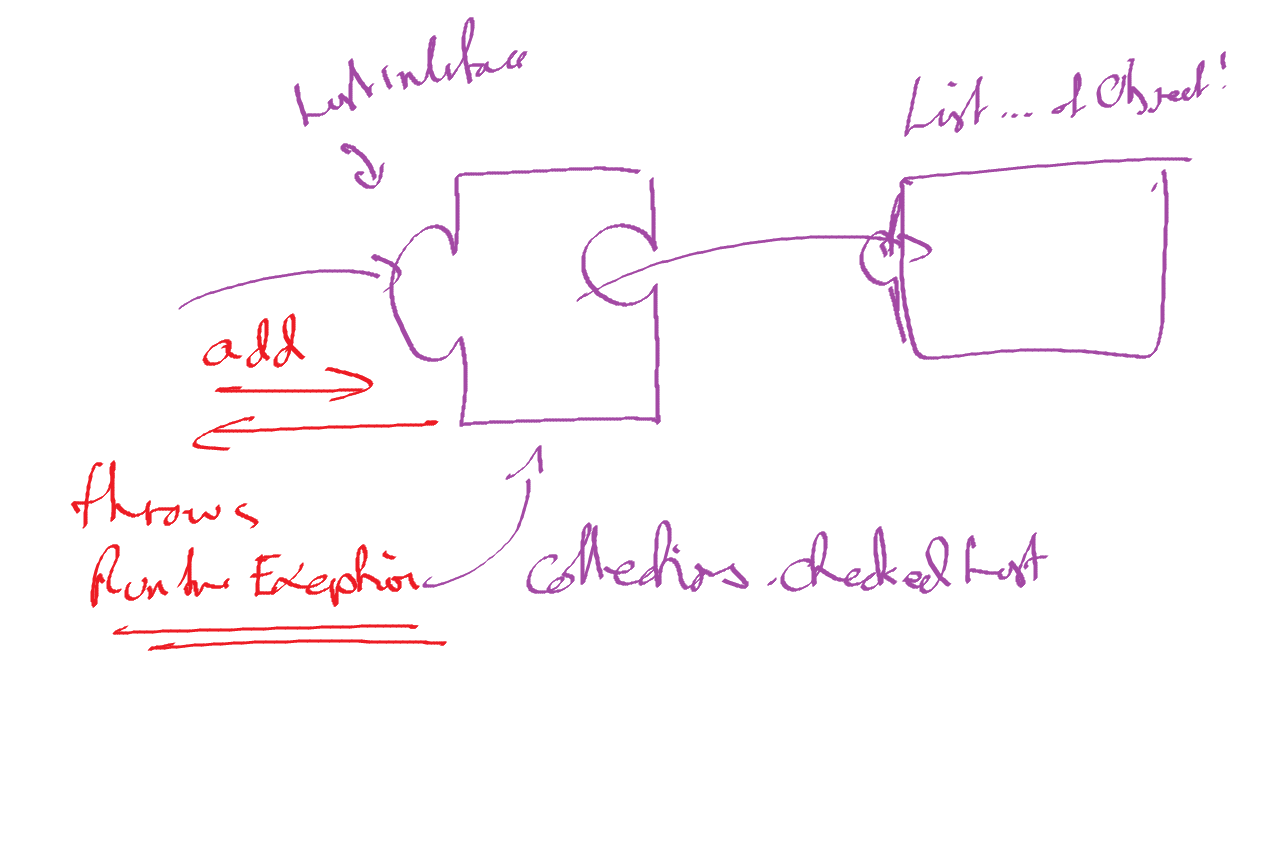 List Interface
List... of Object!
add
throws
Runtime Exception
Collections.checkedList